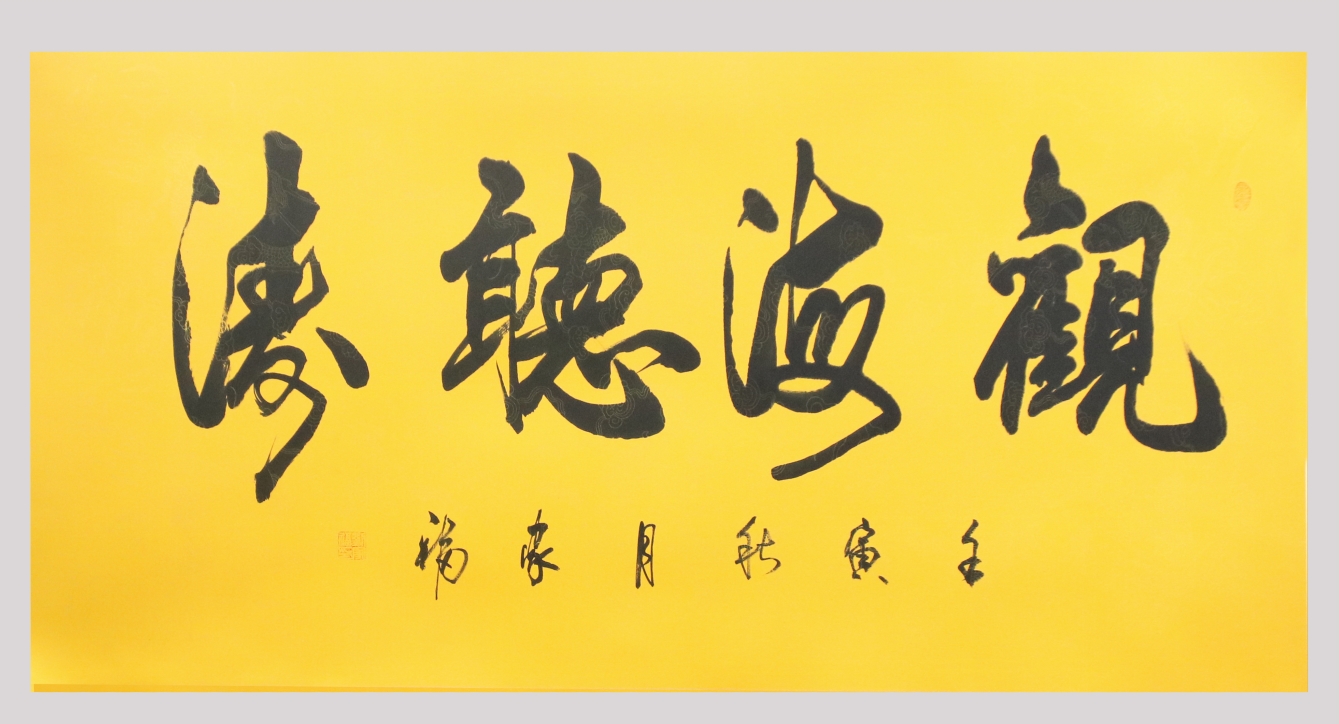 觀海聽濤
壬寅秋月家福